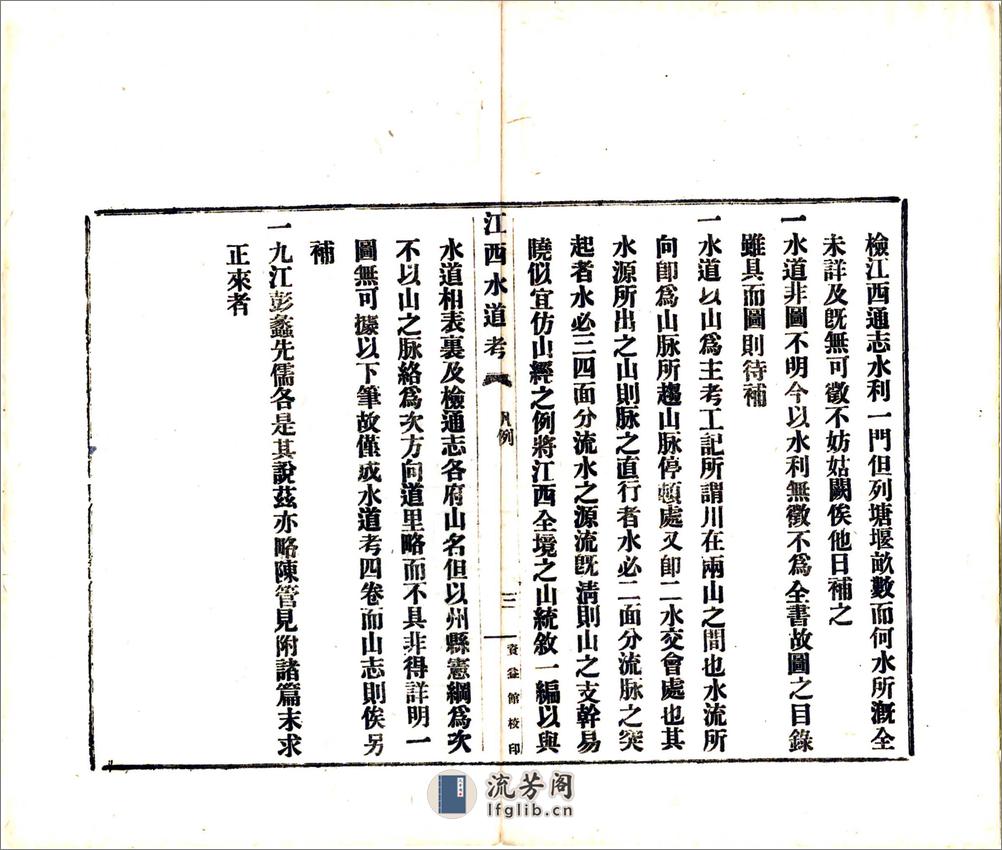 檢江西通志水利一門但列塘堰畝數而何水所溉全
未詳及旣無可徵不妨姑闕俟他日補之
一水道非圖不明今以水利無徵不爲全書故圖之目錄
雖具而圖則待補
一水道以山爲主考工記所謂川在兩山之間也水流所
向卽爲山脉所趨山脉停頓處又卽二水交會處也其
水源所出之山則脉之直行者水必二面分流脉之突
起者水必三四面分流水之源流旣淸則山之支幹易
曉似宜仿山經之例將江西全境之山統敘一編以與
江西水道考 凡例 三 資益館校印
水道相表裏及檢通志各府山名但以州縣憲綱爲次
不以山之脉絡爲次方向道里略而不具非得詳明一
圖無可據以下筆故僅成水道考四卷而山志則俟另
補
一九江彭蠡先儒各是其說茲亦略陳管見附諸篇末求
正來者
流芳阁
lfglib.cn